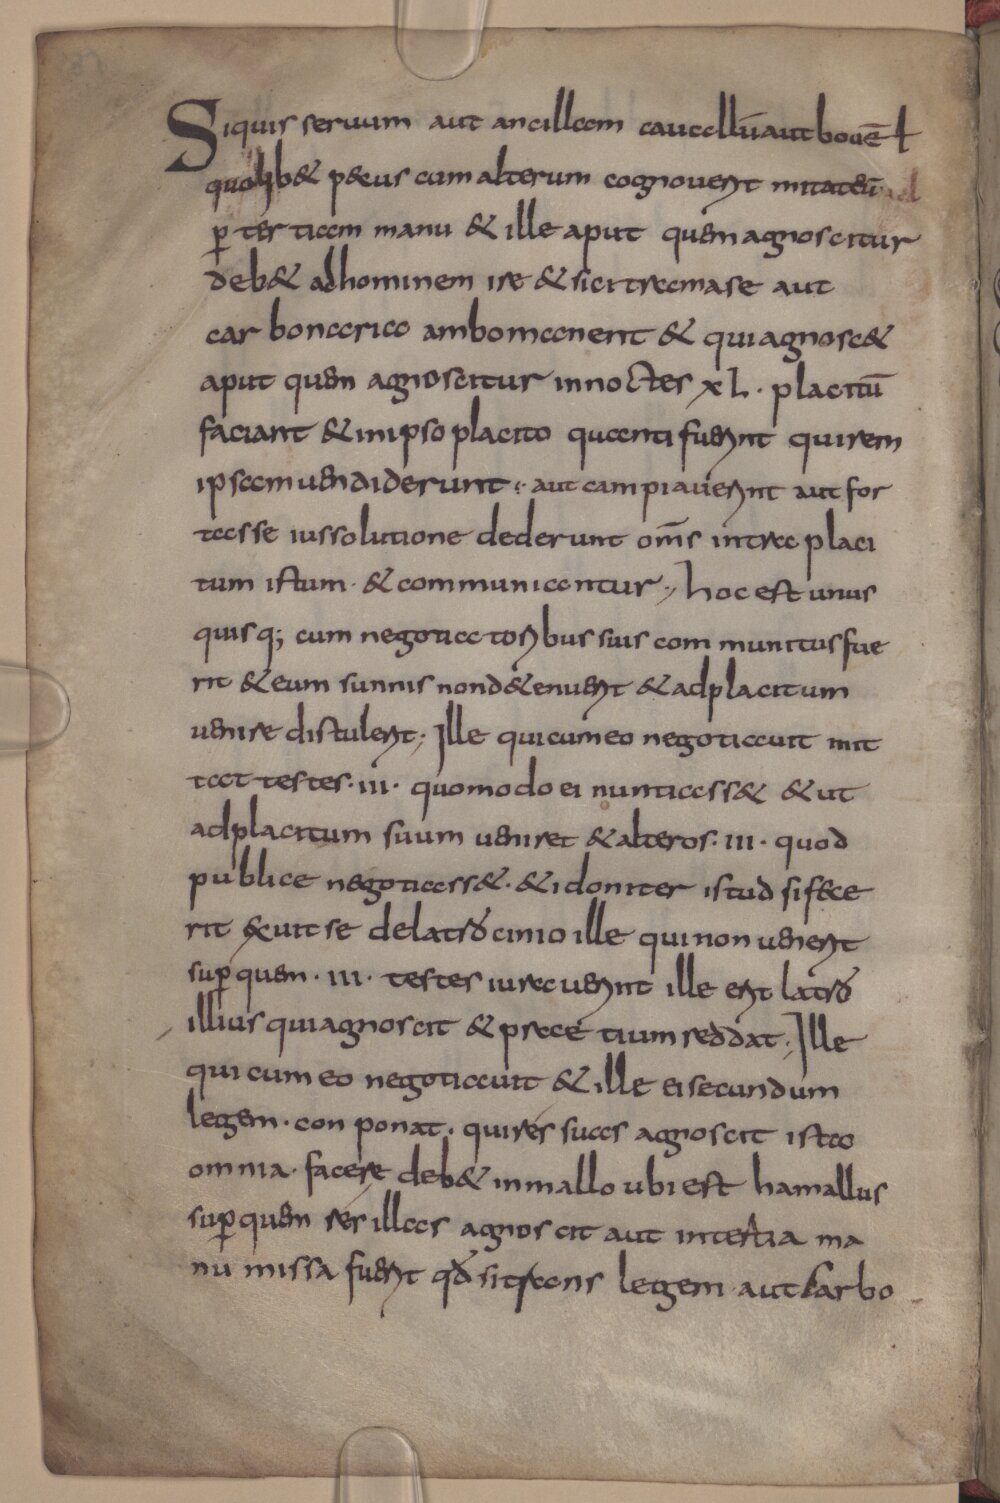 Siquis seruum aut ancillam cauallū aut bouē ł
quolib& pecus cum alterum cognouerit mitat eū
p̱ tertiam manu & ille aput quem agnoscitur
deb& adhominem ire & si citra mare aut
carbonaria ambo manent & qui agnosc&
aput quem agnoscitur in noctes xL· placitū
faciant & in ipso placito quanti fuerint qui rem
ipsam uendiderunt aut campiauerint aut for
tasse iussolutione dederunt om̄s intra placi
tum istum· & communicentur; hoc est unus
quisq; cum negotiatoribus suis communitus fue
rit & eum sunnis non d&enuerit & adplacitum
uenire distulerit; Ille qui cum eo negotiauit mit
tat testes· III· quomodo ei nuntiass& & ut
adplacitum suum ueniret & alteros· III· quod
publice negotiass&· & idoniter istud si fece
rit exuit se de latrōcinio ille qui non uenerit
sup̱ quem· III· testes iurauerint ille erit latrō
illius qui agnoscit & præcetium reddat; Ille
qui cum eo negotiauit & ille ei secundum
legem· conponat· qui res suas agnoscit ista
omnia· facere deb& in mallo ubi est hamallus
sup̱ quem res illas agnoscit aut in tertia ma
nu missa fuerit qđ si trans legem aut carbo